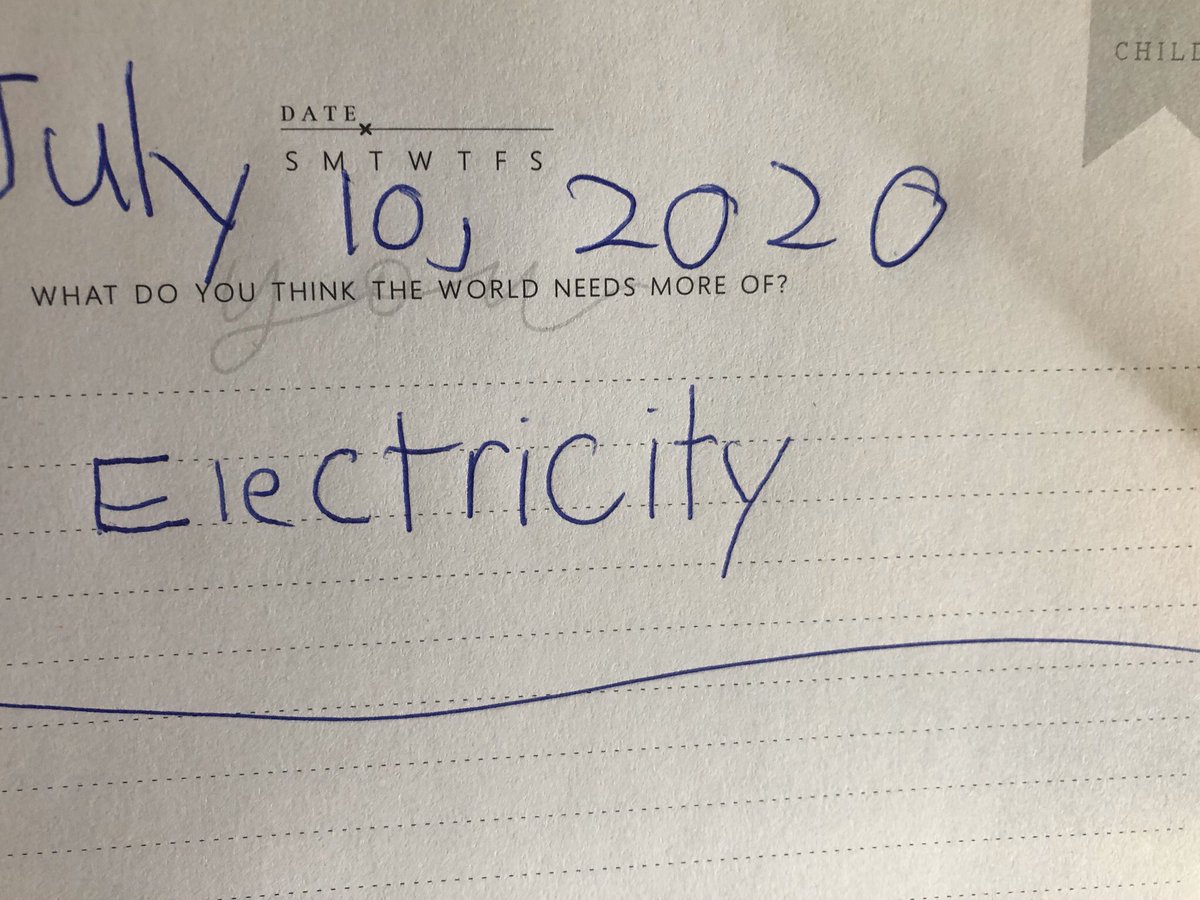 CHILD
DATE
S M T W T F S
July 10, 2020
you
WHAT DO YOU THINK THE WORLD NEEDS MORE OF?
Electricity